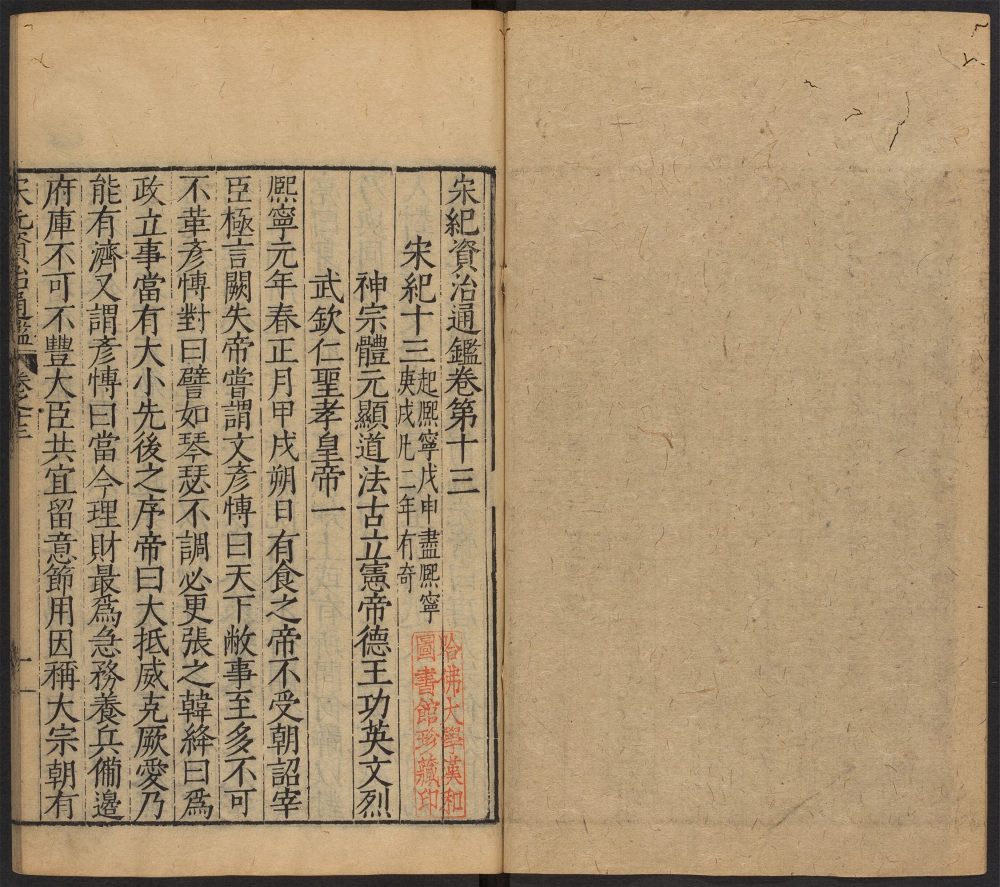 宋紀資治通鑑卷第十三
宋紀十三
起熈寧戊申盡熈寧
庚戌凡二年有奇
神宗體元顯道法古立憲帝德王功英文烈
武欽仁聖孝皇帝一
熈寧元年春正月甲戌朔日有食之帝不受朝詔宰
臣極言闕失帝嘗謂文彥愽曰天下敝事至多不可
不革彥愽對曰譬如琴瑟不調必更張之韓絳曰爲
政立事當有大小先後之序帝曰大抵威克厥愛乃
能有濟又謂彥愽曰當今理財最爲急務養兵備邊
府庫不可不豐大臣共宜留意節用因稱大宗朝有
宋元資治通鑑 卷之十三 一
哈佛大學漢和
圖書館珍藏印